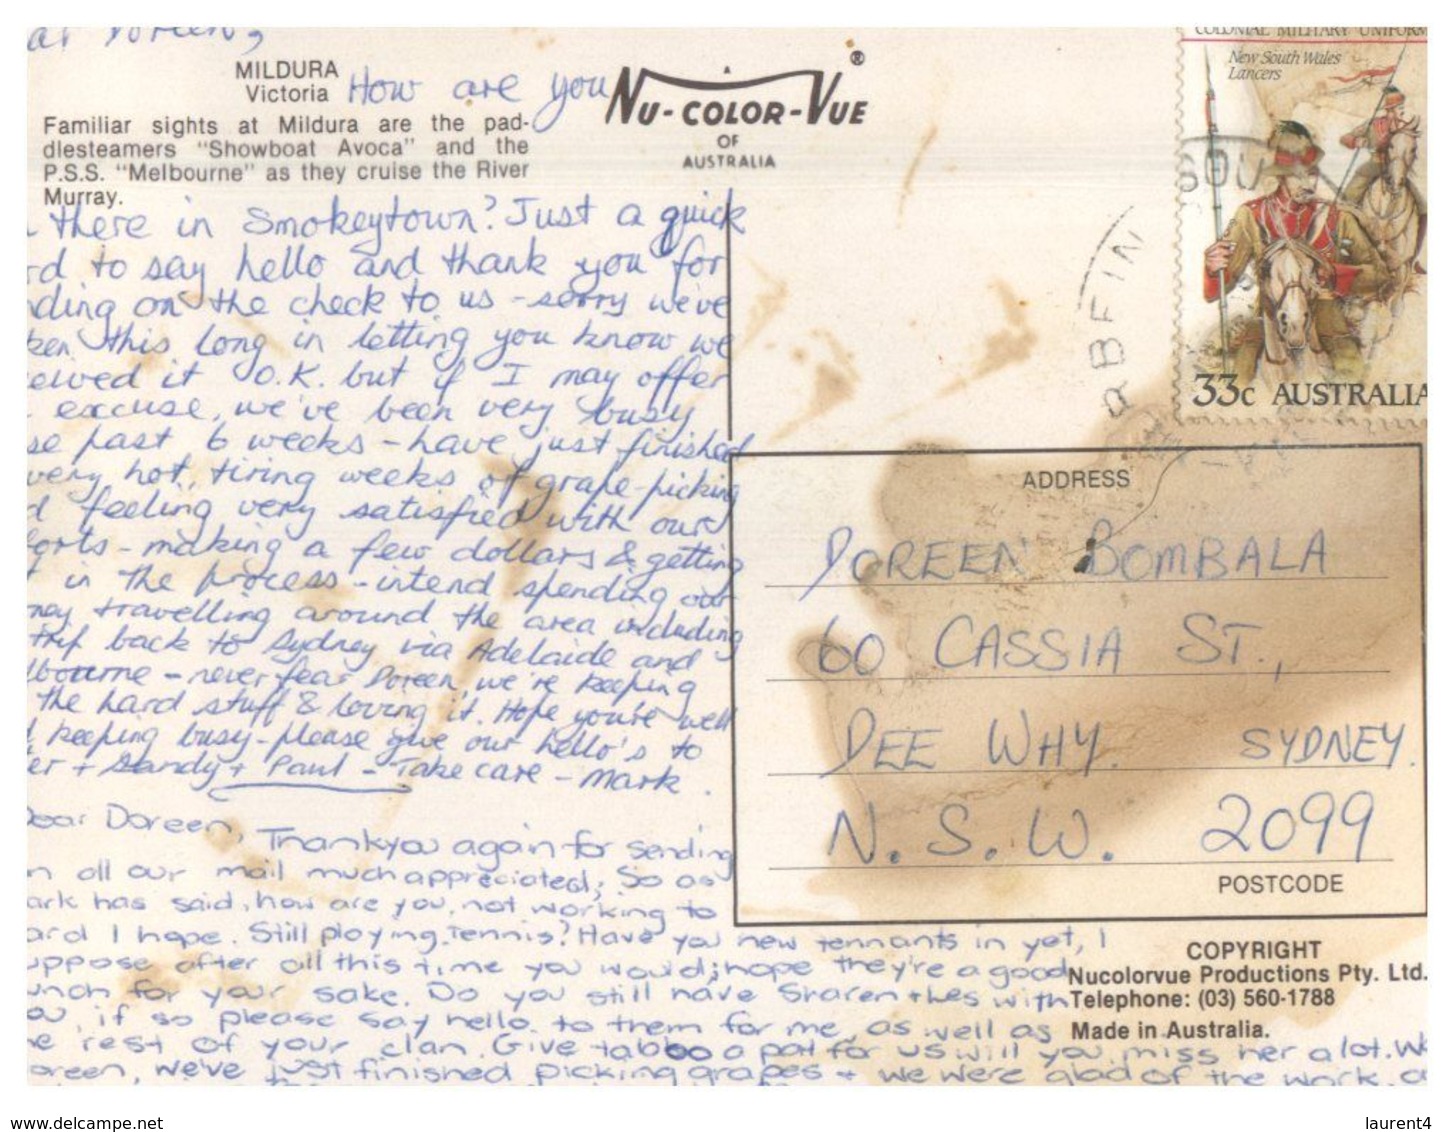 ar Doreen,
MILDURA
Victoria
How are you
Familiar sights at Mildura are the pad-
dlesteamers "Showboat Avoca" and the
P.S.S. "Melbourne" as they cruise the River
Murray.
there in Smokeytown? Just a quick
rd to say hello and thank you for
ding on the check to us - sorry we've
ken this long in letting you know we
eived it O.K. but if I may offer
excuse, we've been very busy
se past 6 weeks - have just finished
very hot, tiring weeks of grape-picking
d feeling very satisfied with our
forts - making a few dollars & getting
in the process - intend spending our
ney travelling around the area including
trip back to Sydney via Adelaide and
lbourne - never fear Doreen, we're keeping
the hard stuff & loving it. Hope you're well
keeping busy - please give our hello's to
er + Sandy + Paul - Take care - Mark.
Dear Doreen,
Thankyou again for sending
n all our mail much appreciated; So as
ark has said, how are you, not working to
ard I hope. Still playing tennis? Have you new tennants in yet, I
uppose after all this time you would; hope they're a good
unch for your sake. Do you still have Sharen + Les with
ou, if so please say hello to them for me, as well as
he rest of your clan. Give tabboo a pat for us will you, miss her a lot. We
oreen, we've just finished picking grapes + we were glad of the work, a
NU-COLOR-VUE ®
OF
AUSTRALIA
COLONIAL MILITARY UNIFORM
New South Wales
Lancers
33c AUSTRALIA
RBEIN
SOU
ADDRESS
DOREEN BOMBALA
60 CASSIA ST.,
DEE WHY. SYDNEY.
N.S.W. 2099
POSTCODE
COPYRIGHT
Nucolorvue Productions Pty. Ltd.
Telephone: (03) 560-1788
Made in Australia.
www.delcampe.net
laurent4